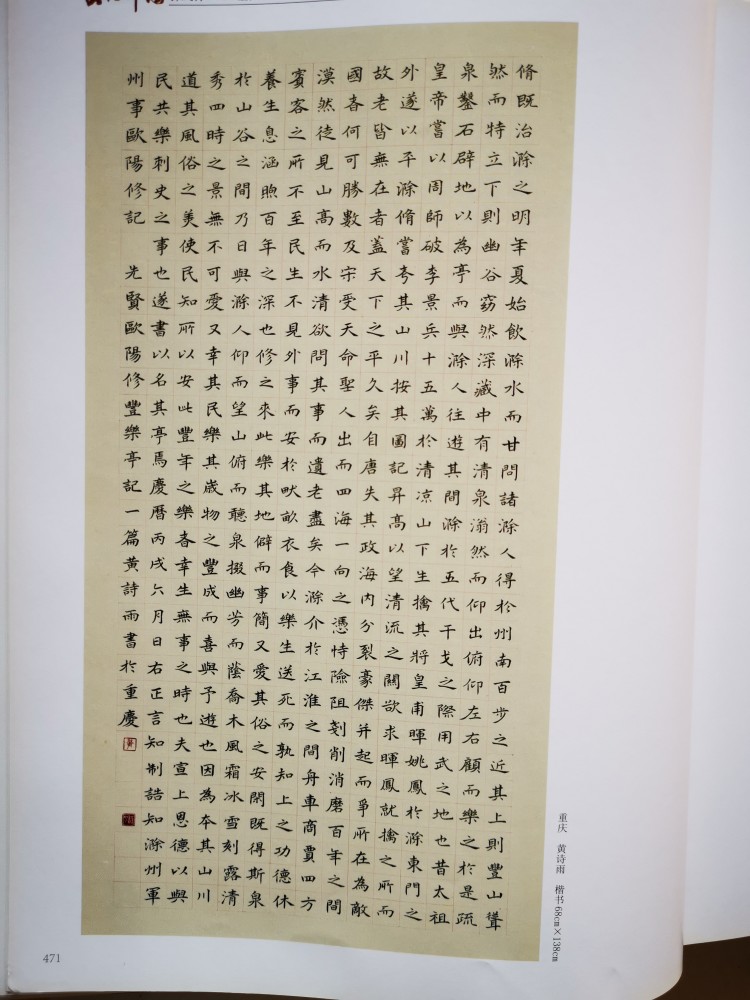 脩既治滁之明年夏始飲滁水而甘問諸滁人得於州南百步之近其上則豐山聳
然而特立下則幽谷窈然深藏中有清泉滃然而仰出俯仰左右顧而樂之於是疏
泉鑿石辟地以為亭而與滁人往遊其間滁於五代干戈之際用武之地也昔太祖
皇帝嘗以周師破李景兵十五萬於清凉山下生擒其將皇甫暉姚鳳於滁東門之
外遂以平滁脩嘗考其山川按其圖記昇高以望清流之關欲求暉鳳就擒之所而
故老皆無在者蓋天下之平久矣自唐失其政海内分裂豪傑并起而爭所在為敵
國者何可勝數及宋受天命聖人出而四海一向之憑恃險阻剗削消磨百年之間
漠然徒見山高而水清欲問其事而遺老盡矣今滁介於江淮之間舟車商賈四方
賓客之所不至民生不見外事而安於畎畝衣食以樂生送死而孰知上之功德休
養生息涵煦百年之深也修之來此樂其地僻而事簡又愛其俗之安閑既得斯泉
於山谷之間乃日與滁人仰而望山俯而聽泉掇幽芳而蔭喬木風霜冰雪刻露清
秀四時之景無不可愛又幸其民樂其歲物之豐成而喜與予遊也因為本其山川
道其風俗之美使民知所以安此豐年之樂者幸生無事之時也夫宣上恩德以與
民共樂刺史之事也遂書以名其亭焉慶曆丙戌六月日右正言知制誥知滁州軍
州事歐陽修記 先賢歐陽修豐樂亭記一篇黃詩雨書於重慶
重庆 黄诗雨 楷书 68cm×138cm
471